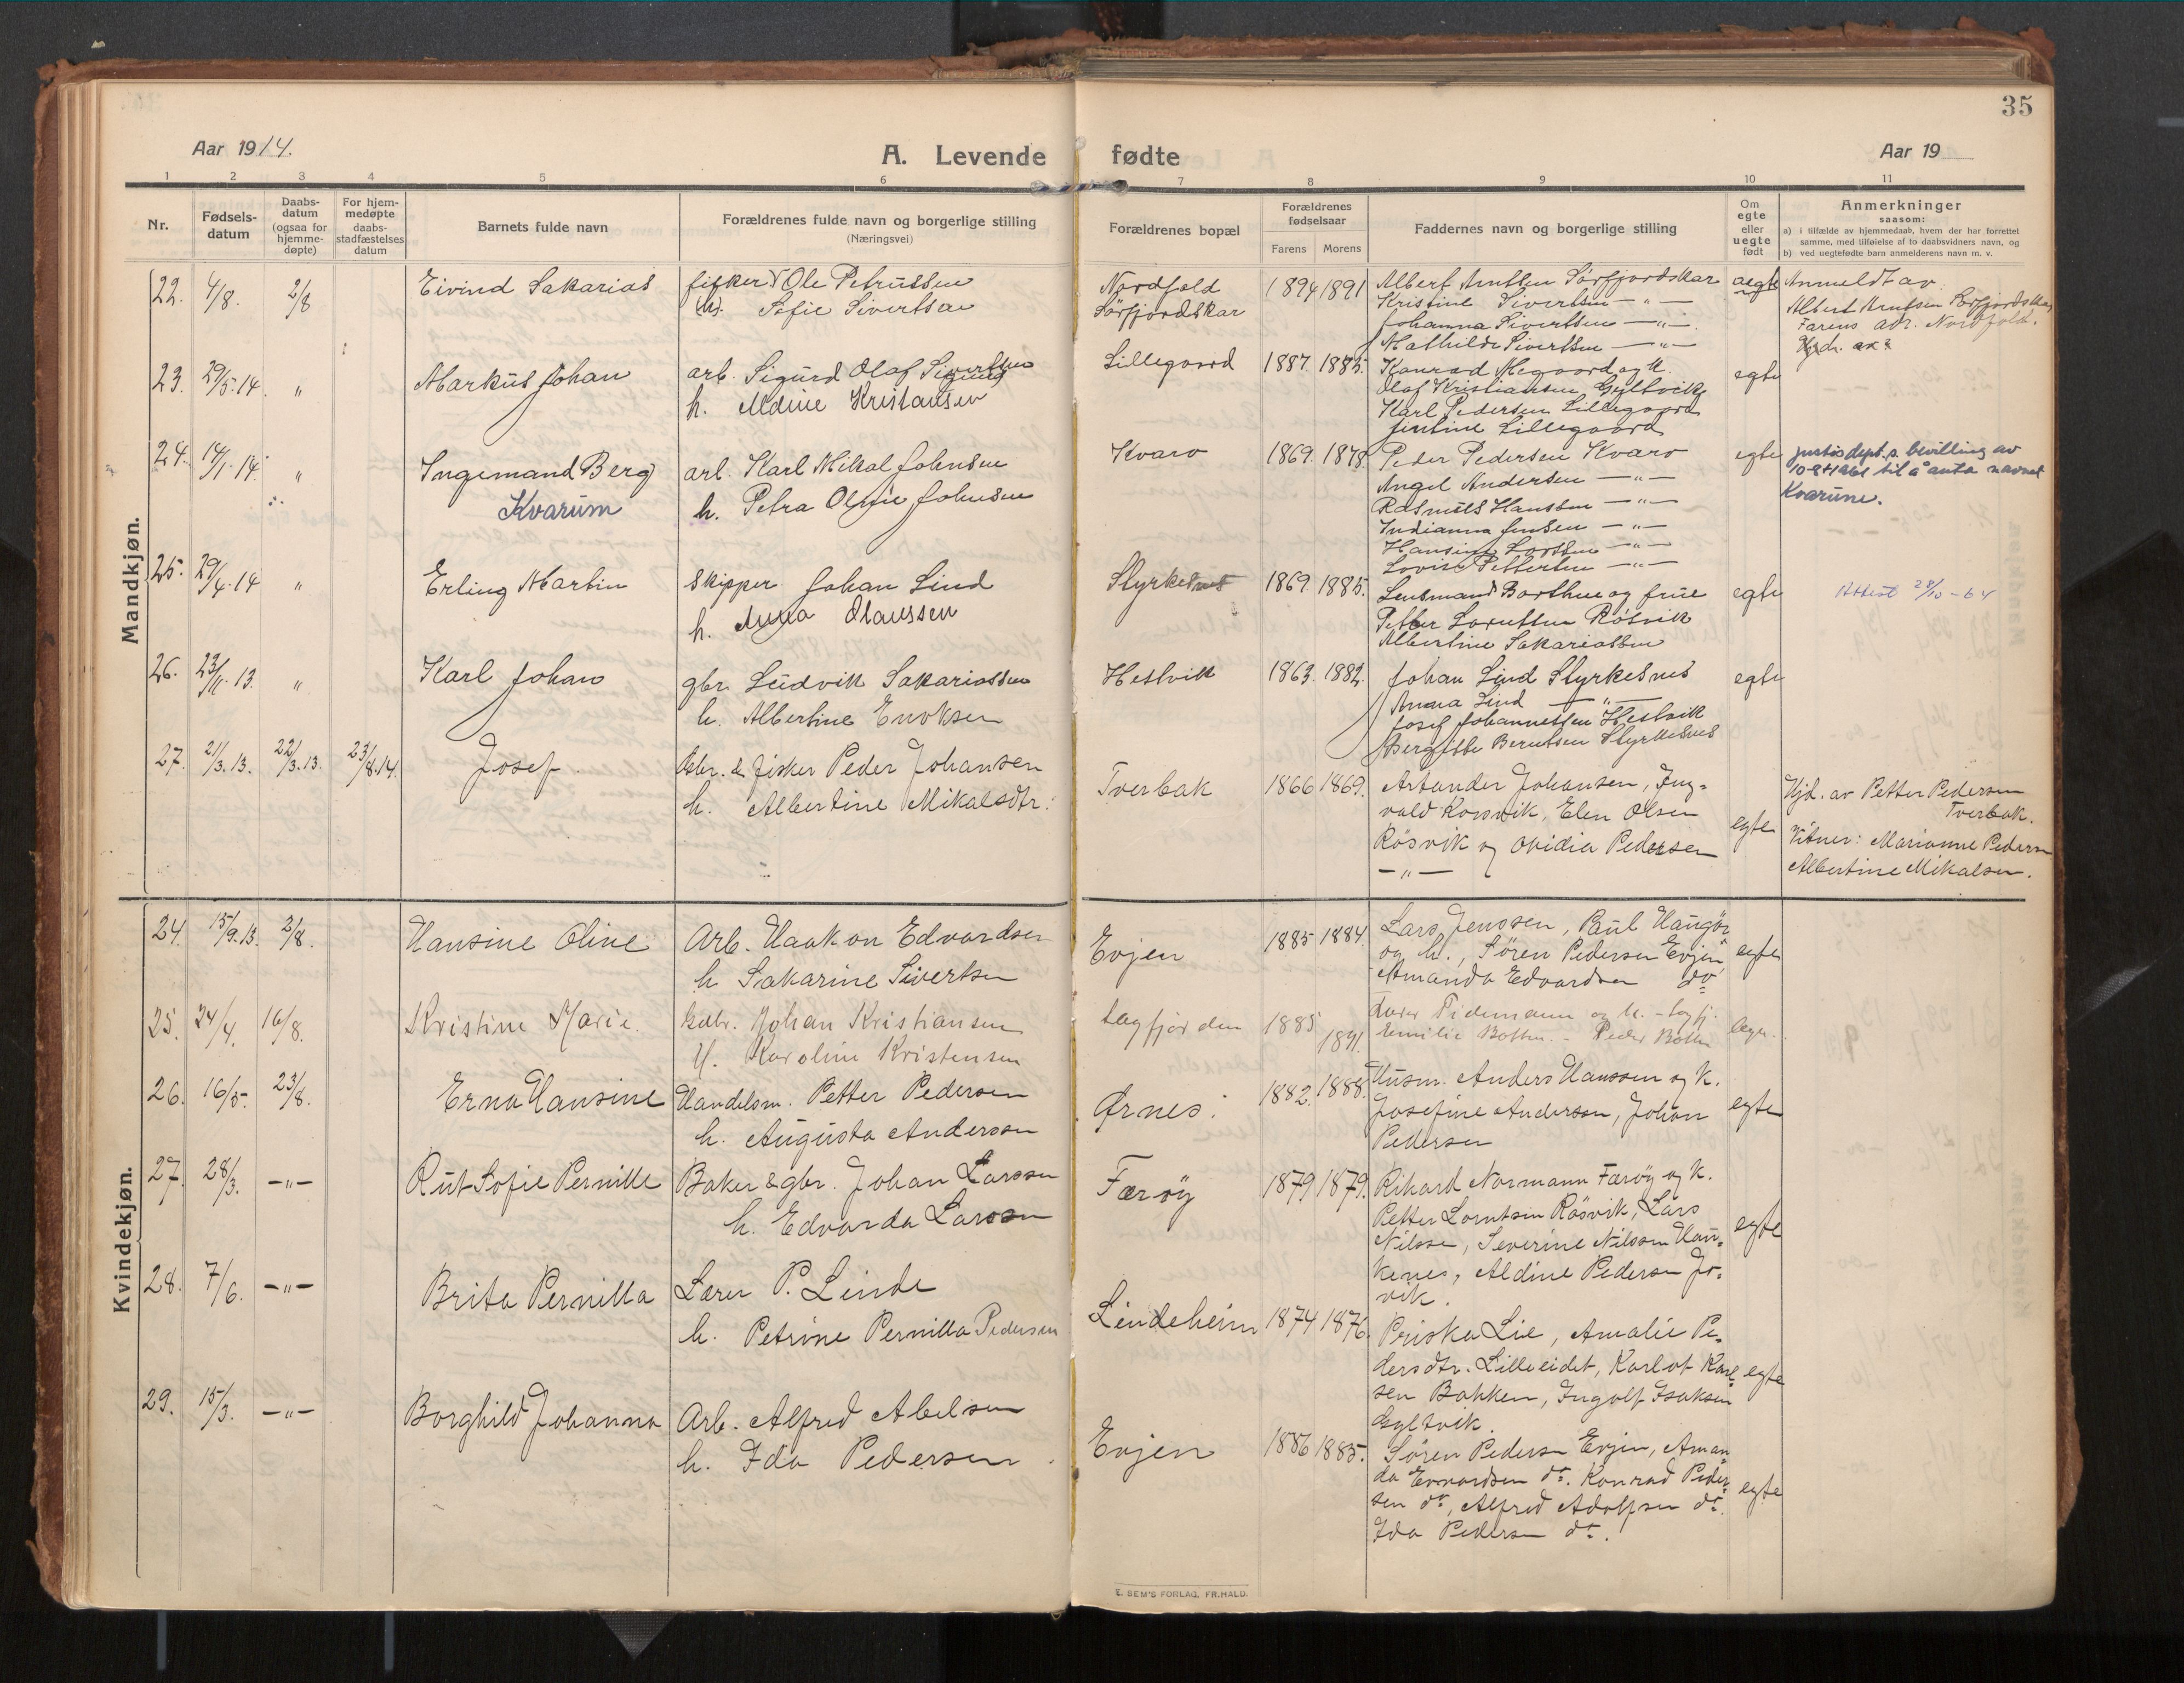 35
Aar 1914.
A. Levende fødte
Aar 19
1 2 3 4 5 6 7 8 9 10 11
Nr.
Fødsels-
datum
Daabs-
datum
(ogsaa for
hjemme-
døpte)
For hjem-
medøpte
daabs-
stadfæstelses
datum
Barnets fulde navn
Forældrenes fulde navn og borgerlige stilling
(Næringsvei)
Forældrenes bopæl
Forældrenes
fødselsaar
Farens Morens
Faddernes navn og borgerlige stilling
Om
egte
eller
uegte
født
Anmerkninger
saasom:
a) i tilfælde av hjemmedaab, hvem der har forrettet
samme, med tilføielse af to daabsvidners navn, og
b) ved uegtefødte barn anmelderens navn m. v.
Mandkjøn.
22. 4/8. 2/8
Eivind Sakarias
fisker Ole Petrussen
Sofie Sivertsen
Nordfold
Sørfjordskar
1894 1891
Albert Arntsen Sørfjordskar
Kristine Sivertsen —"—
Johanna Sivertsen —"—
Mathilde Sivertsen —"—
uegte
Anmeldt av
Albert Arntsen Sørfjordskar
Farens adr. Nordfold.
23. 29/5.14. "
Markus Johan
arb. Sigurd Olaf Sivertsen
h. Aldine Kristansen
Lillegaard
1887 1885.
Konrad Megaard og k.
Olaf Kristiansen Gyltvik
Karl Pedersen Lillegaard
Jentine Lillegaard
egte
24. 14/1.14. "
Ingemand Berg
Kvarum
arb. Karl Mikal Johnsen
h. Petra Oline Johnsen
Kvarv
1869. 1878.
Peder Pedersen Kvarv
Angel Andersen —"—
Rasmus Hanssen —"—
Indianna Jensen —"—
Hansine Larssen —"—
Lovise Pettersen —"—
egte
justisdept.s bevilling av
10-8-1961 til å anta navnet
Kvarum.
25. 29/4.14 "
Erling Martin
skipper Johan Lind
h. Anna Olaussen
Styrkesnes
1869. 1885.
Lensmand Barthue og frue
Petter Lorntsen Røsvik
Albertine Sakariassen
egte
Attest 28/10-64
26. 23/11.13. "
Karl Johan
gbr Ludvik Sakariassen
h. Albertine Enoksen
Hestvik
1863. 1882.
Johan Lind Styrkesnes
Anna Lind —"—
Josef Johannessen Hestvik
Bergitte Berntsen Styrkesnes
egte
27. 21/3.13. 22/3.13. 23/8.14.
Josef.
Gbr. & fisker Peder Johansen
h. Albertine Mikalsdtr.
Tverbak
1866 1869.
Artander Johansen, Ing-
vald Korsvik, Elen Olsen
Røsvik og Ovidia Pedersen
—"—
egte
Hjd. av Petter Pedersen
Tverbak.
Vitner: Marianne Pedersen
Albertine Mikalsen.
Kvindekjøn.
24. 15/9.13. 2/8.
Hansine Oline
Arb. Haakon Edvardsen
h Sakarine Sivertsen
Evjen
1885 1884.
Lars Jenssen, Paul Haugør
og h., Søren Pedersen Evjen
Amanda Edvardsen do
egte
25. 24/4. 16/8.
Kristine Marie.
Gdbr. Johan Kristiansen
H. Karoline Kristensen
Lagfjorden
1885
1891.
Lærer Tidemann og h. - Lagfj.
Emilie Botten. - Peder Botten
26. 16/5. 23/8.
Erna Hansine
Handelsm. Petter Pedersen
h. Augusta Andersen
Ørnes.
1882. 1888.
Husm. Anders Hanssen og k.
Josefine Andersen, Johan
Pedersen
egte
27. 28/3. —"—
Rut Sofie Pernille
Baker & gbr. Johan Larssen
h. Edvarda Larssen
Færøy
1879 1879.
Rikard Normann Færøy og k.
Petter Lorntsen Røsvik, Lars
Nilsen, Severine Nilssen Hau-
kenes, Aldine Pedersen Jo-
vik.
egte
28. 7/6. —"—
Brita Pernilla
Lærer P. Linde
h. Petrine Pernilla Pedersen
Lindeheim
1874 1876.
Priska Lie, Amalie Pe-
dersdtr. Lilleeidet, Karlot Karl-
sen Bakken, Ingolf Isaksen
Gyltvik.
egte
29. 15/3. —"—
Borghild Johanna
Arb. Alfred Abelsen
h. Ida Pedersen
Evjen
1886 1885.
Søren Pedersen Evjen, Aman-
da Edvardsen do. Konrad Peder-
sen do, Alfred Adolfsen do.
Ida Pedersen do.
egte
E. SEM'S FORLAG, FR.HALD.